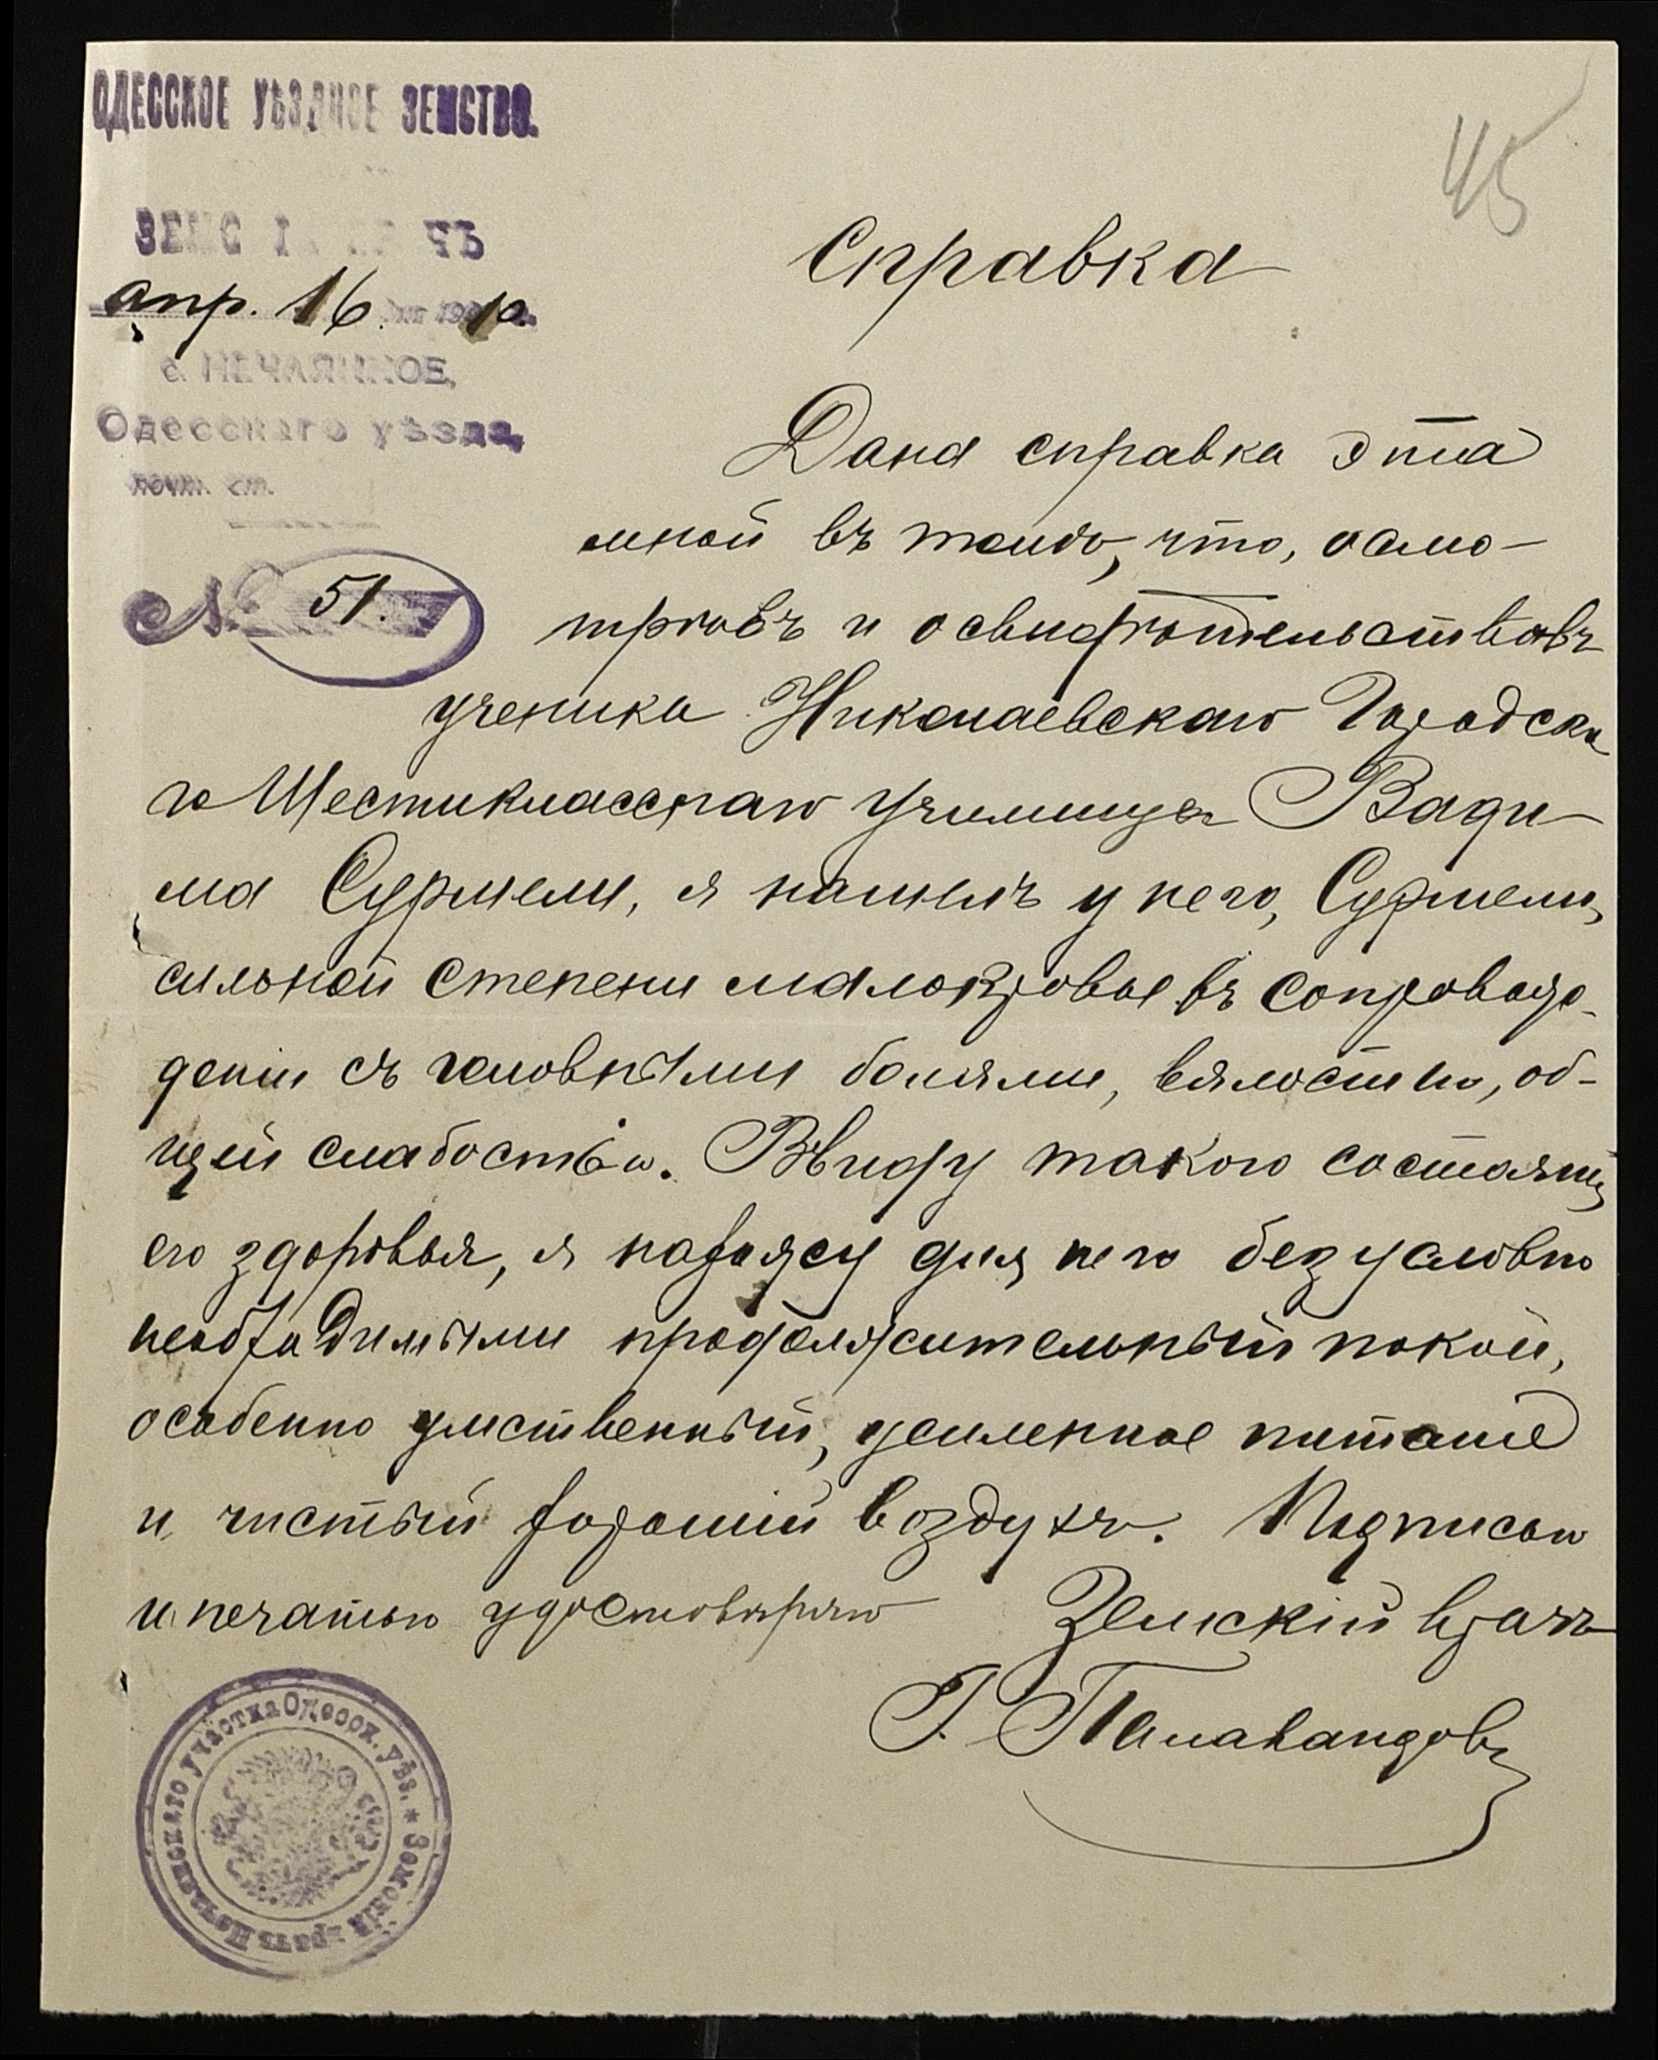 ОДЕССКОЕ УѢЗДНОЕ ЗЕМСТВО.
45
ЗЕМС
апр. 16. 10.
с. НЕЧАЯННОЕ,
Одесскаго уѣзда,
почт. ст.
№ 51.
Справка
Дана справка эта
мной въ томъ, что, осмо-
трѣвъ и освидѣтельствовавъ
ученика Николаевскаго Городска
го Шестикласснаго училища Вади-
ма Сурмели, я нашелъ у него, Сурмели,
сильной степени малокровье въ сопровож-
деніи съ головными болями, вялостью, об-
щей слабостью. Ввиду такого состоянія
его здоровья, я нахожу для него безусловно
необходимыми продолжительный покой,
особенно умственный, усиленное питаніе
и чистый хорошій воздухъ. Подписью
и печатью удостовѣряю Земскій врачъ
Г. Палавандовъ
Земскій врачъ Нечаянскаго участка Одесск. уѣз. *